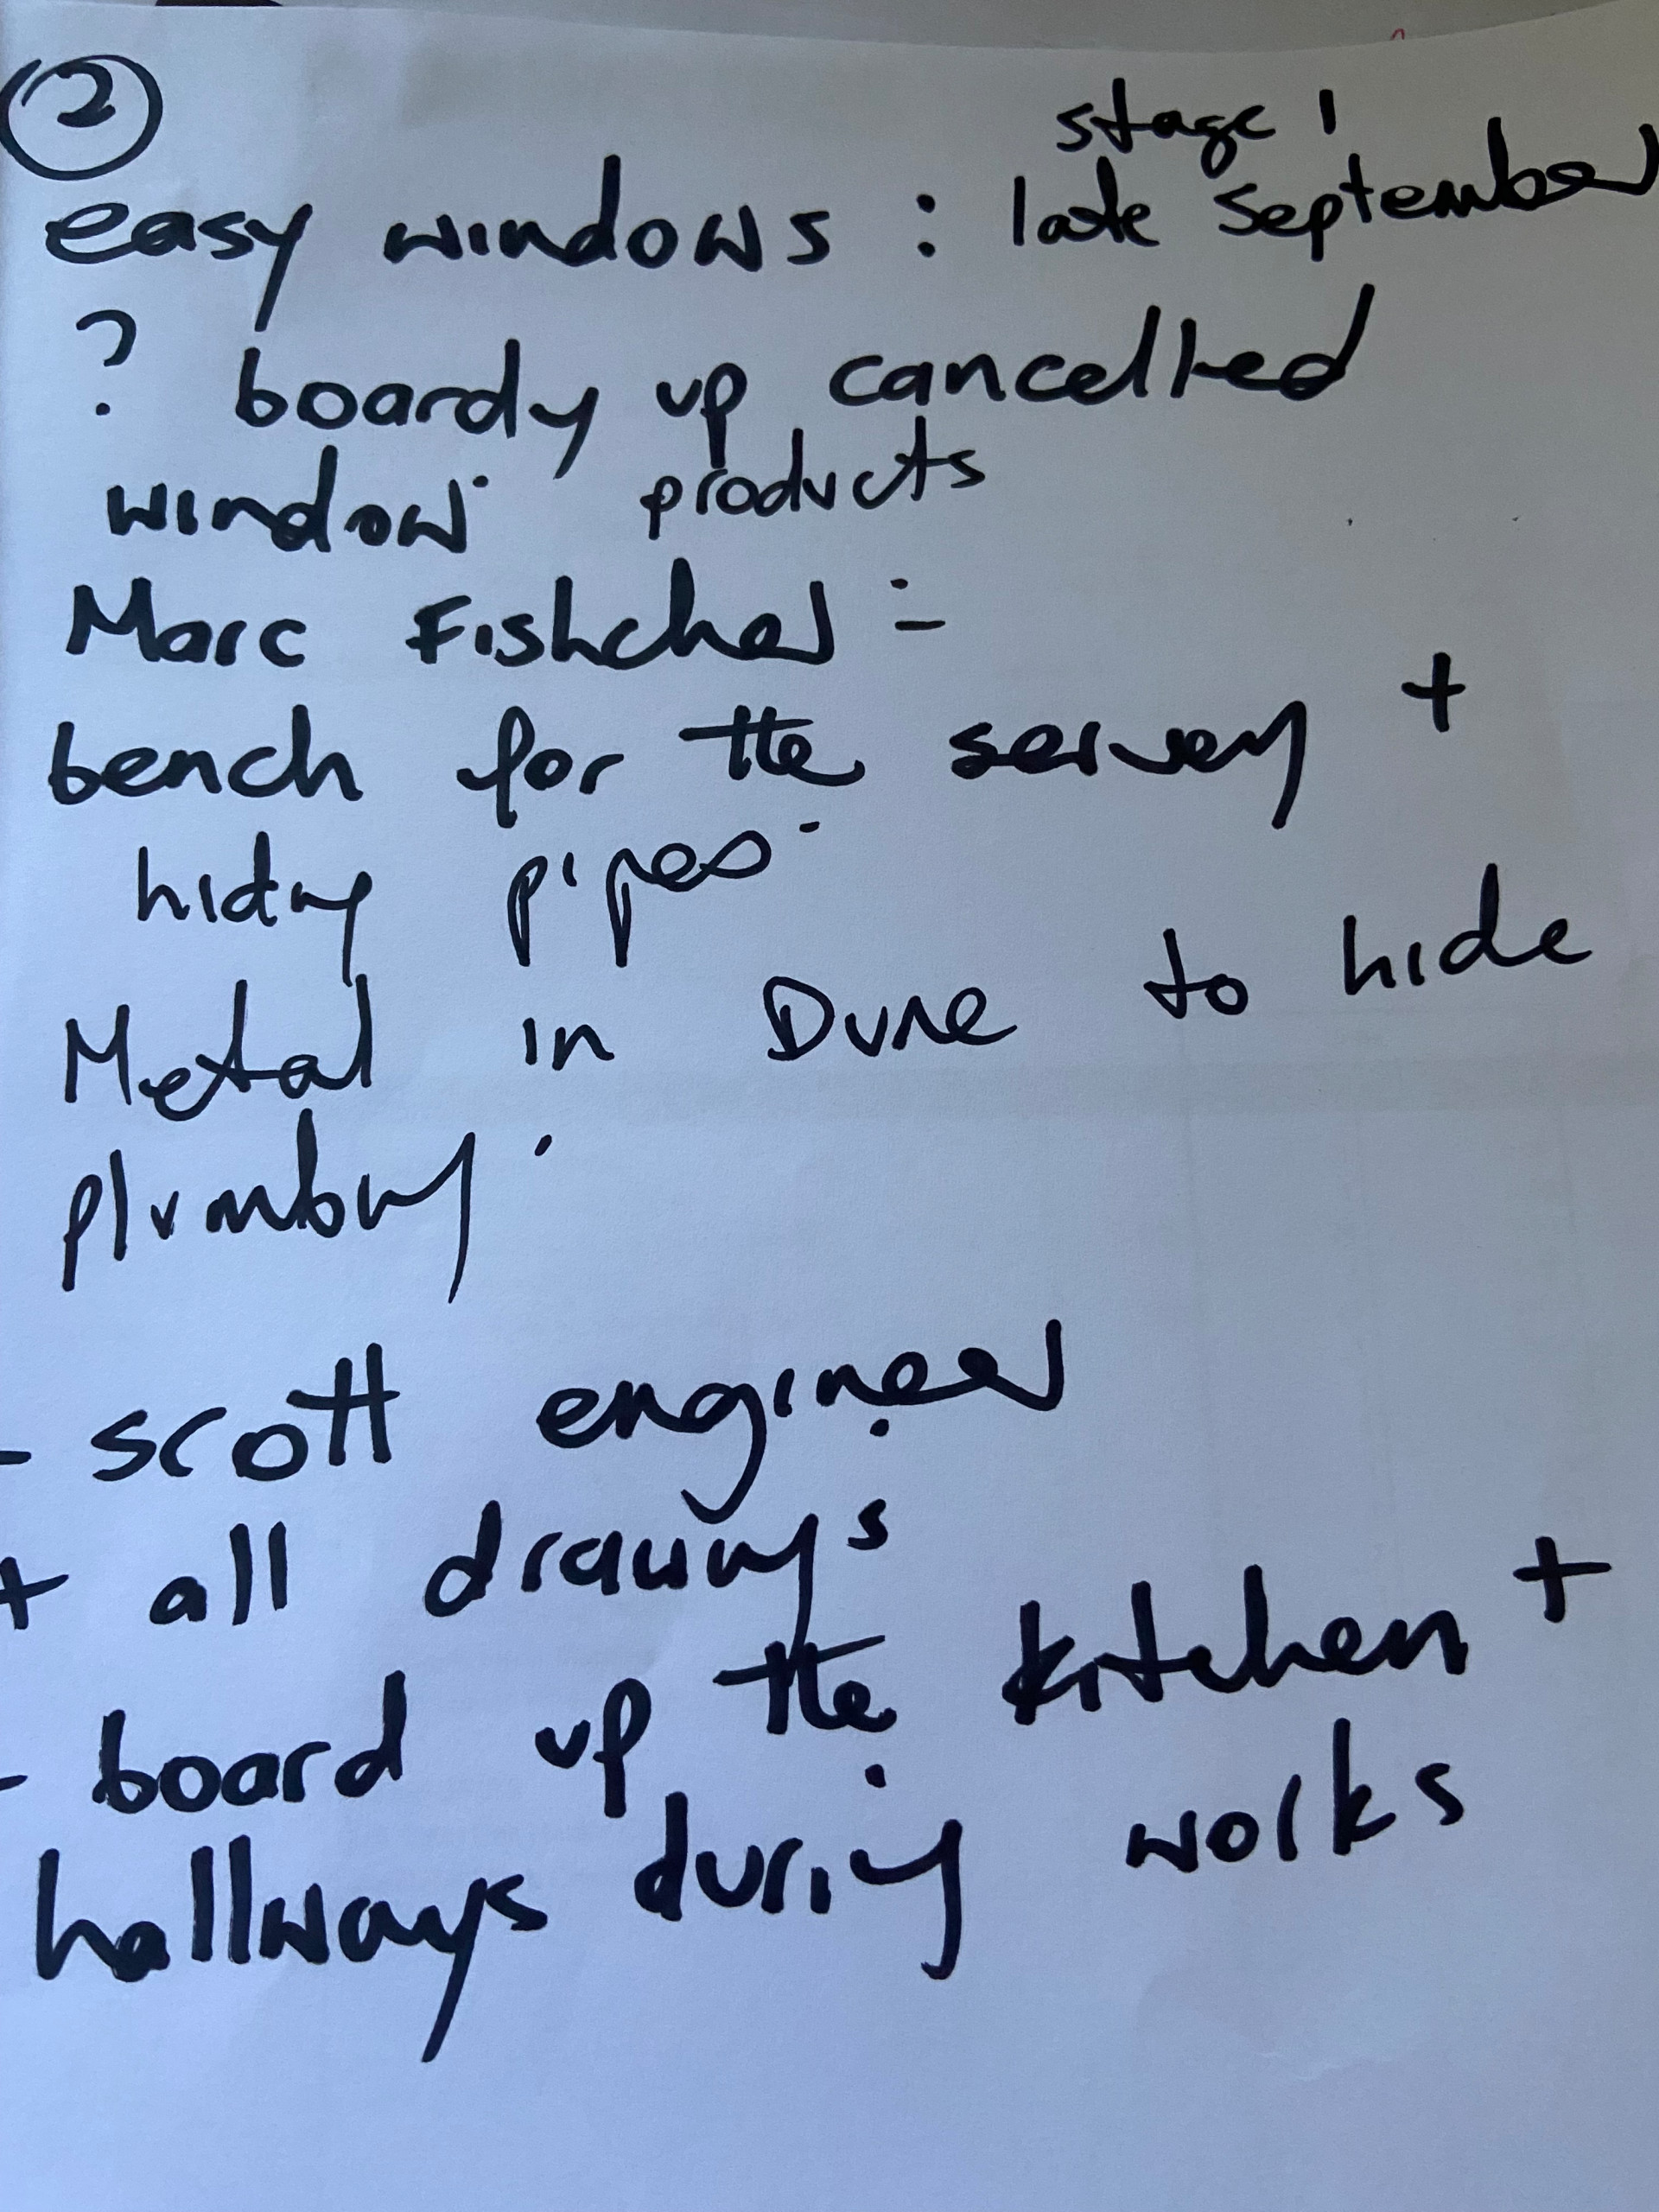 2
stage 1
easy windows : late September
? boardy up cancelled
window products
Marc Fishcher :-
bench for the servery +
hiding pipes
Metal in Dune to hide
plumbing
- scott engineer
+ all drawings
- board up the kitchen +
hallways during works